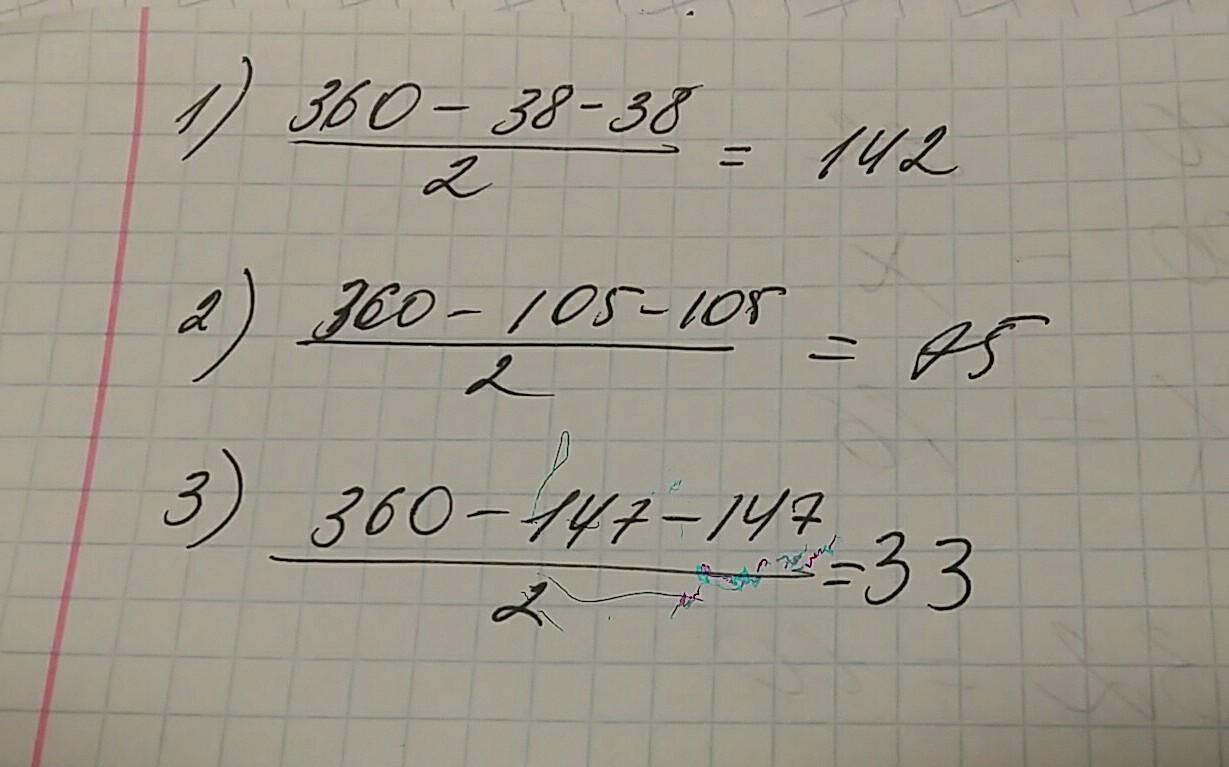 1) (360 - 38 - 38) / 2 = 142
2) (360 - 105 - 105) / 2 = 75
3) (360 - 147 - 147) / 2 = 33